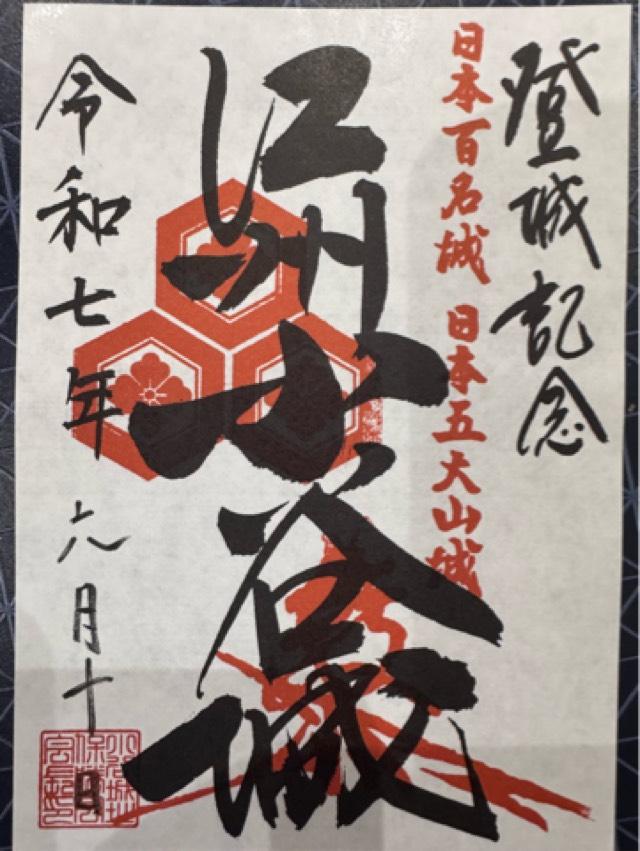 登城記念
日本百名城 日本五大山城
江州小谷城
令和七年 六月十日